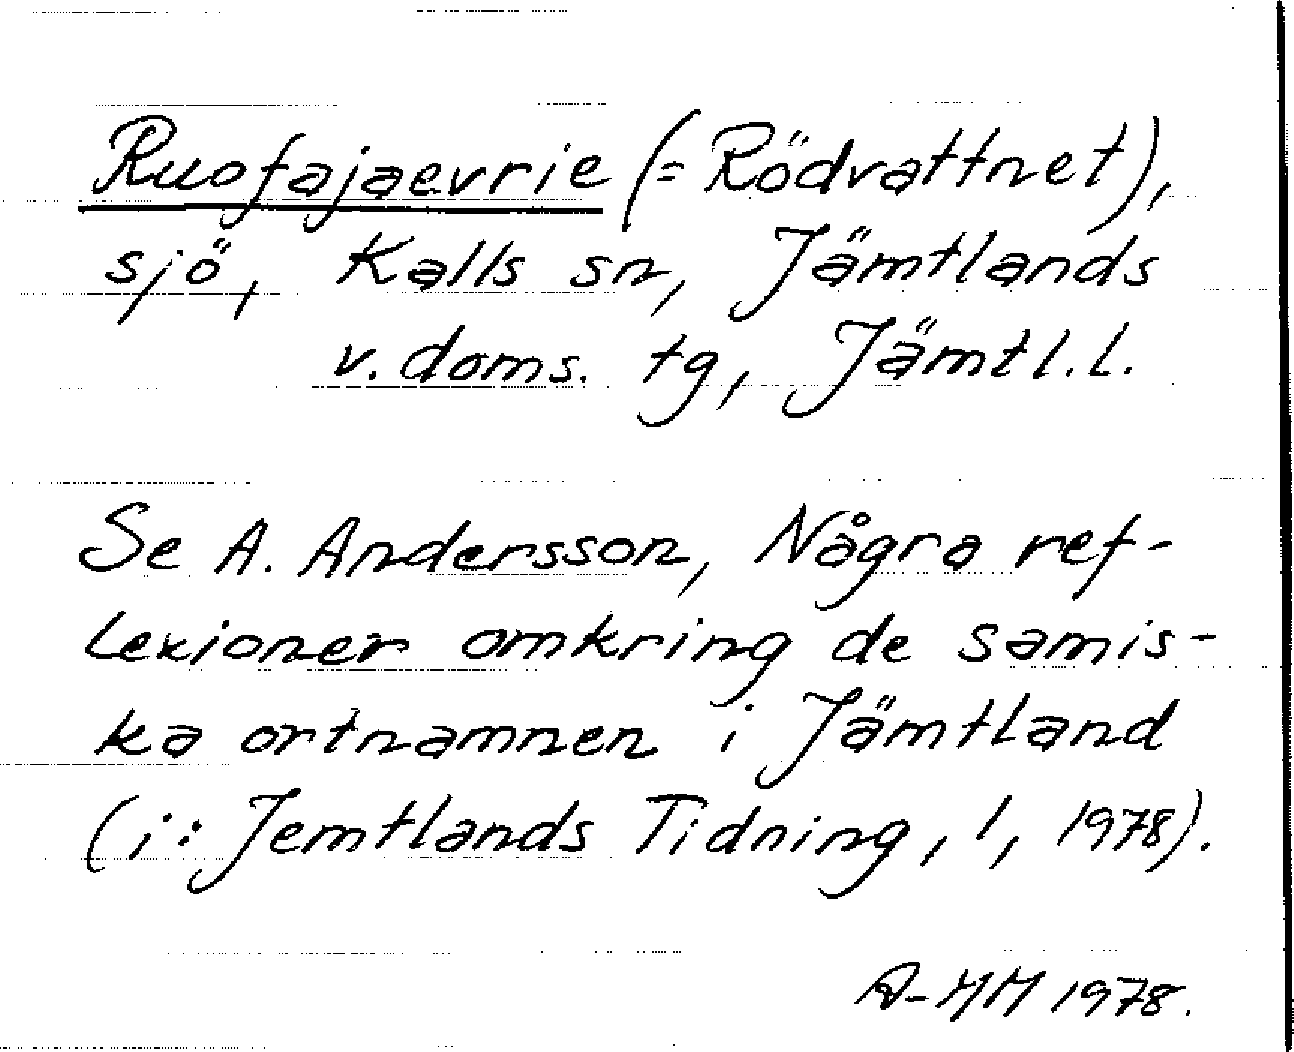 Ruofajaevrie (= Rödvattnet),
sjö, Kalls sn, Jämtlands
v. doms. tg, Jämtl. l.
Se A. Andersson, Några ref-
lexioner omkring de samis-
ka ortnamnen i Jämtland
(i: Jemtlands Tidning, 1, 1978).
A-MM 1978.